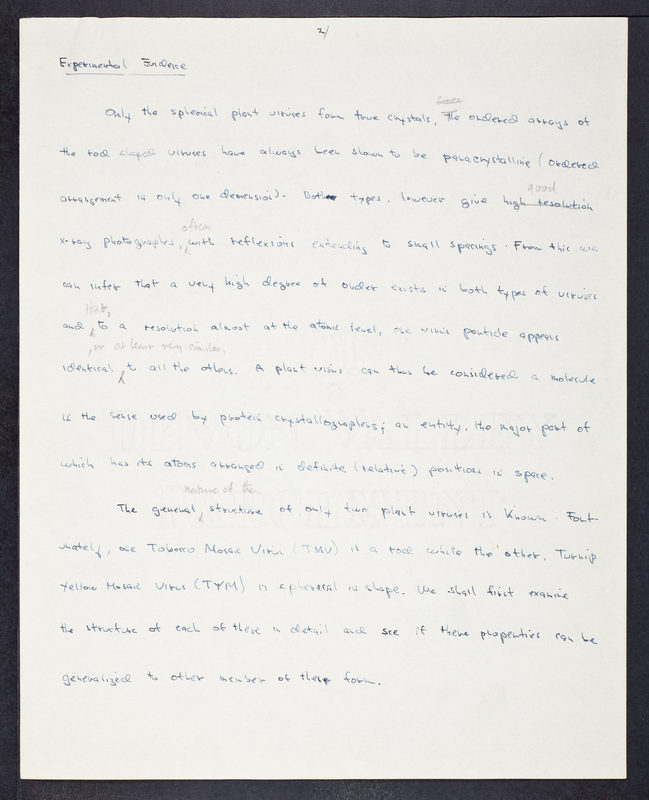 2/
Experimental Evidence
Only the spherical plant viruses form true crystals, The ordered arrays of
the rod shaped viruses have always been shown to be paracrystalline (ordered
arrangement in only one demension). Both types, however give high resolution
good
x-ray photographs, with reflexions extending to small spacings. From this we
often
can infer that a very high degree of order exists in both types of viruses
and to a resolution almost at the atomic level, one virus particle appears
that,
identical to all the others. A plant virus can thus be considered a molecule
, or at least very similar,
in the sense used by protein crystallographers; an entity, the major part of
which has its atoms arranged in definite (relative) positions in space.
The general structure of only two plant viruses is known. Fort-
nature of the
unately, one Tobacco Mosaic Virus (TMV) is a rod while the other, Turnip
Yellow Mosaic Virus (TYM) is spherical in shape. We shall first examine
the structure of each of these in detail and see if there properties can be
generalized to other member of there form.